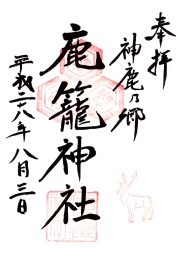 奉拝
神鹿乃郷
鹿籠神社
平成二十八年八月三日